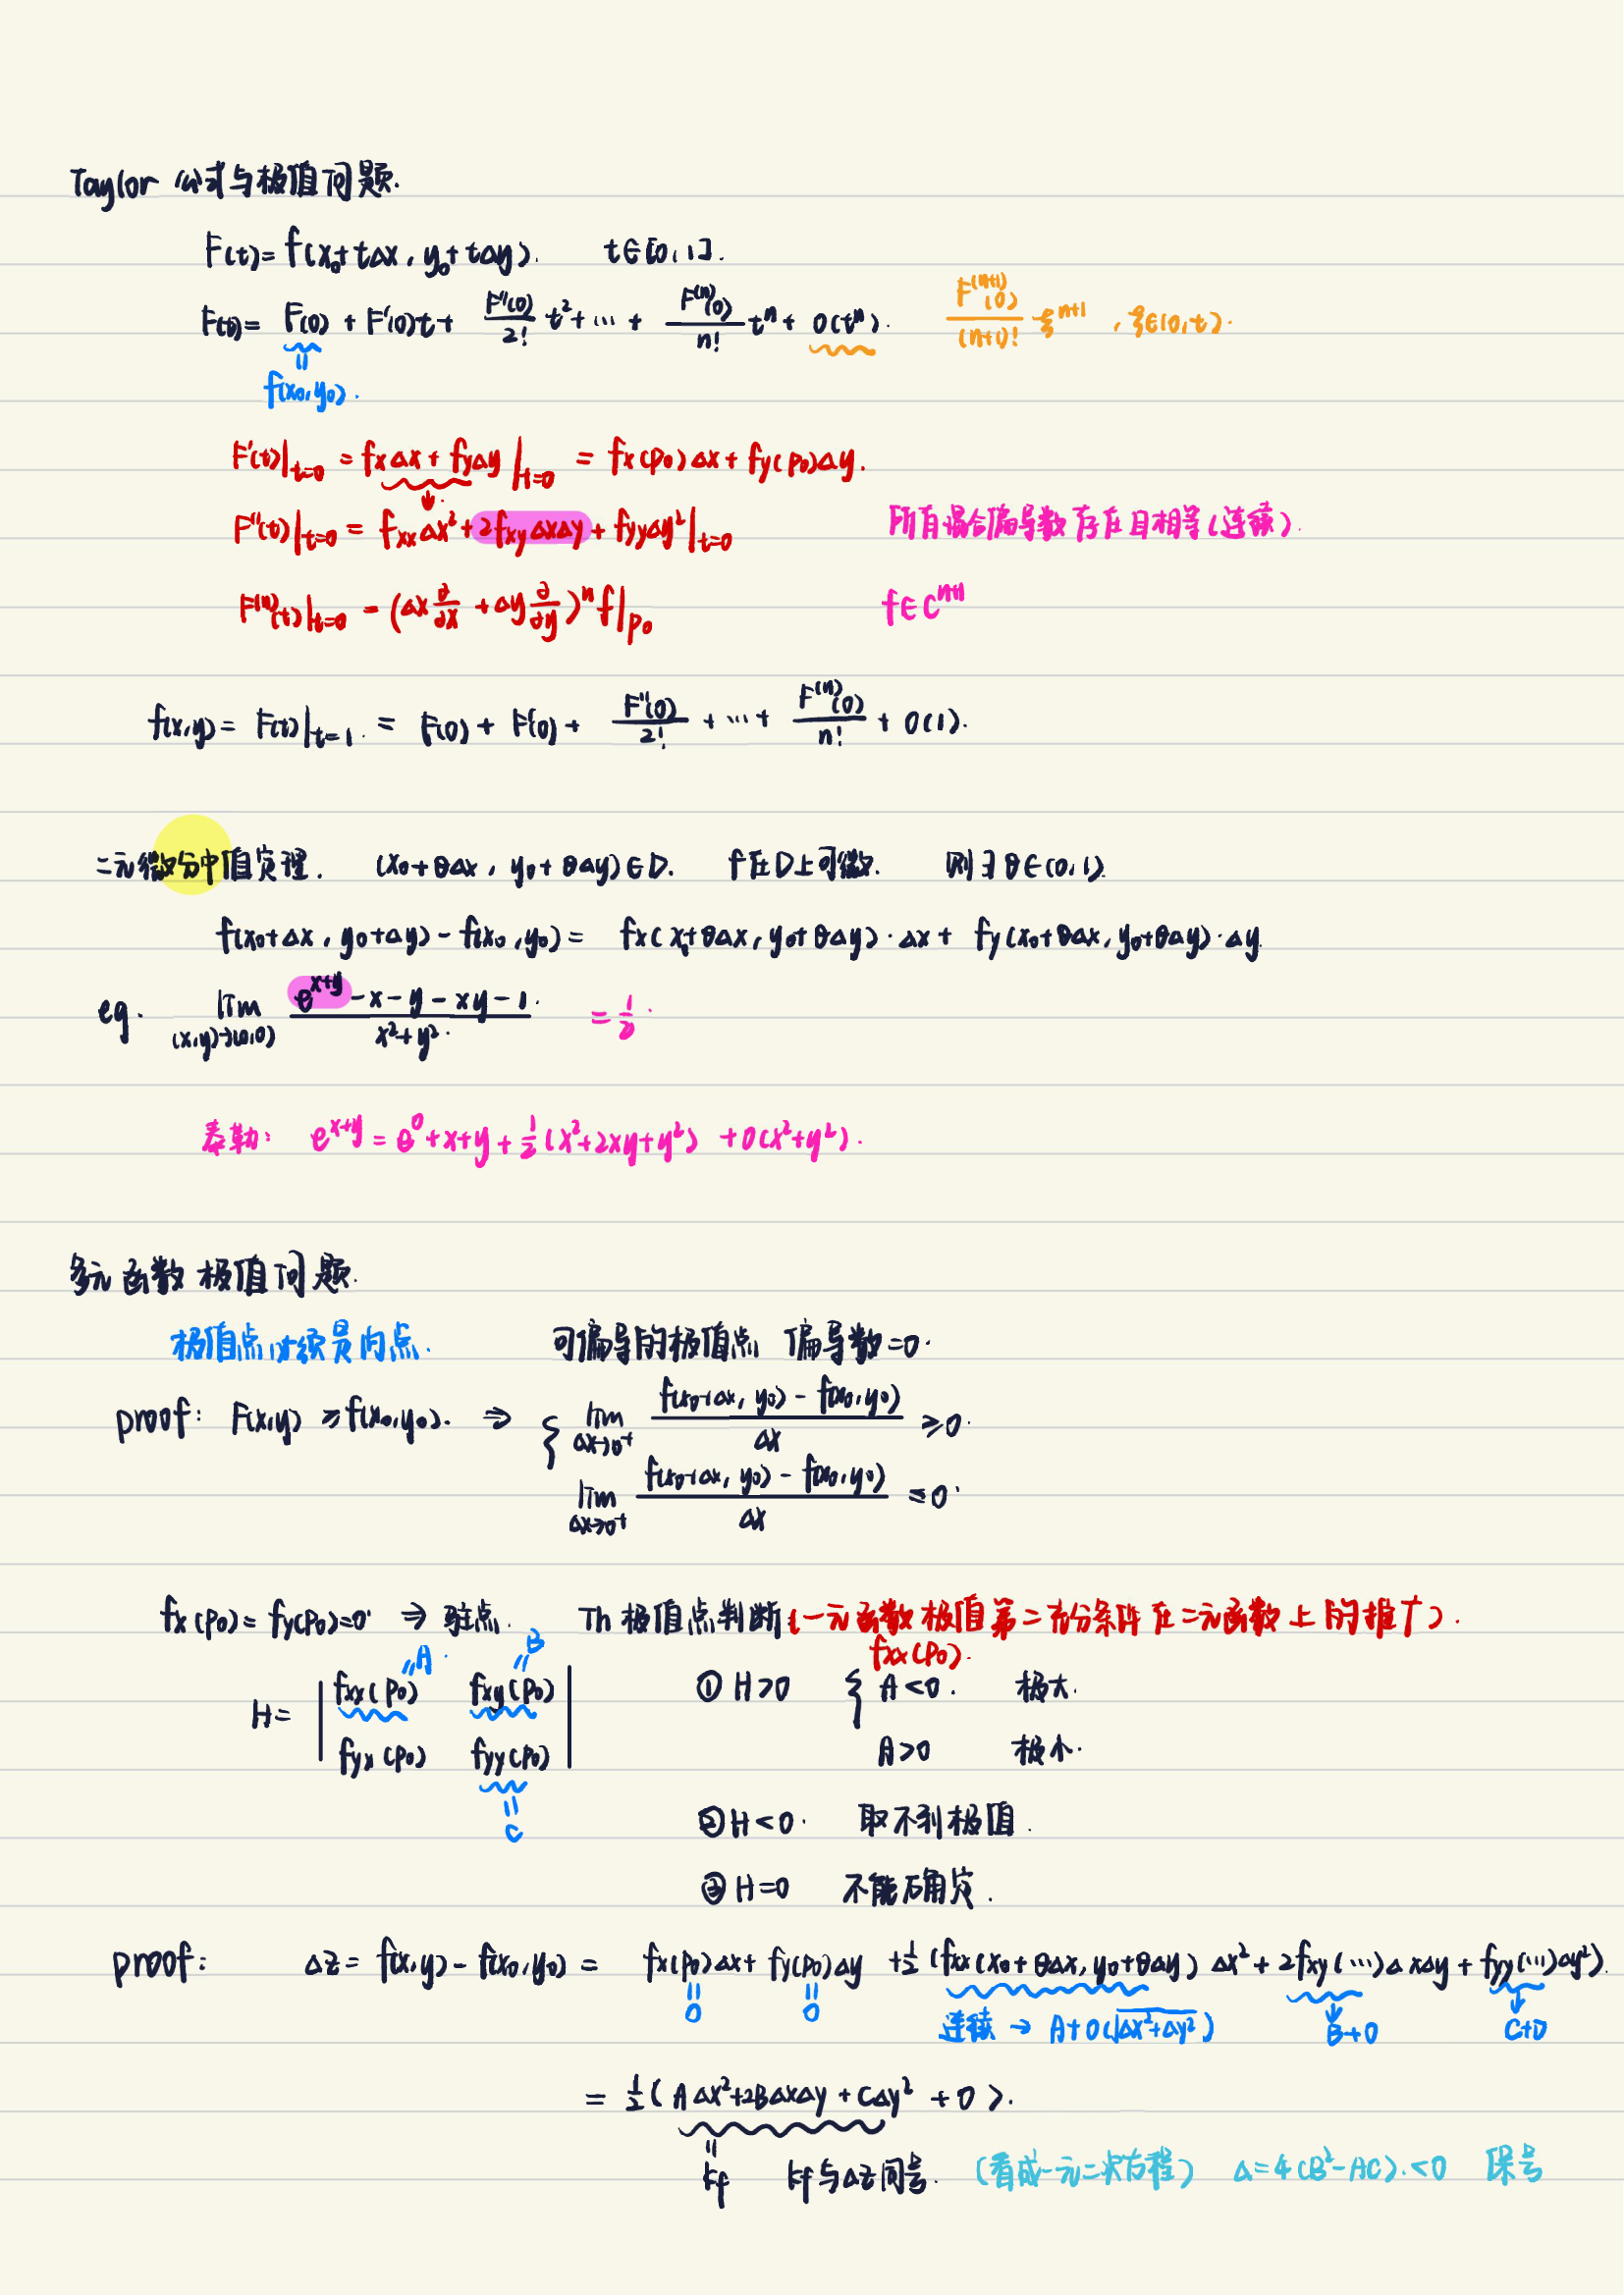 Taylor 公式与极值问题.
F(t)= f(x₀+tΔx, y₀+tΔy). t∈[0,1].
F(t)= F(0) + F'(0)t + F''(0)/2! t² + ⋯ + F⁽ⁿ⁾(0)/n! tⁿ + o(tⁿ). F⁽ⁿ⁺¹⁾(0)/(n+1)! ξⁿ⁺¹ , ξ∈(0,t).
=
f(x₀,y₀).
F'(t)|t=0 = fxΔx + fyΔy |t=0 = fx(P₀)Δx + fy(P₀)Δy.
F''(t)|t=0 = fxxΔx² + 2fxyΔxΔy + fyyΔy² |t=0 所有混合偏导数存在且相等(连续).
F⁽ⁿ⁾(t)|t=0 = (Δx ∂/∂x + Δy ∂/∂y)ⁿ f|P₀ f∈Cⁿ⁺¹
f(x,y)= F(t)|t=1 = F(0) + F'(0) + F''(0)/2! + ⋯ + F⁽ⁿ⁾(0)/n! + o(1).
二元微分中值定理. (x₀+θΔx, y₀+θΔy)∈D. f在D上可微. 则∃θ∈(0,1).
f(x₀+Δx, y₀+Δy) - f(x₀,y₀) = fx(x₀+θΔx, y₀+θΔy)·Δx + fy(x₀+θΔx, y₀+θΔy)·Δy.
eg. lim (x,y)→(0,0) (e^(x+y) - x - y - xy - 1)/(x²+y²) = 1/2.
泰勒: e^(x+y) = e⁰ + x + y + 1/2(x²+2xy+y²) + o(x²+y²).
多元函数极值问题.
极值点必须是内点. 可偏导的极值点 偏导数=0.
proof: F(x,y) ≥ f(x₀,y₀). ⇒ { lim Δx→0⁺ (f(x₀+Δx, y₀) - f(x₀,y₀))/Δx ≥0.
lim Δx→0⁺ (f(x₀+Δx, y₀) - f(x₀,y₀))/Δx ≤0.
fx(P₀) = fy(P₀)=0 ⇒ 驻点. Th 极值点判断 (一元函数极值第二充分条件在二元函数上的推广).
=A =B fxx(P₀).
H= | fxx(P₀) fxy(P₀) | ① H>0 { A<0. 极大.
fyx(P₀) fyy(P₀) A>0 极小.
=
C
② H<0. 取不到极值.
③ H=0 不能确定.
proof: Δz = f(x,y) - f(x₀,y₀) = fx(P₀)Δx + fy(P₀)Δy + 1/2(fxx(x₀+θΔx, y₀+θΔy)Δx² + 2fxy(⋯)ΔxΔy + fyy(⋯)Δy²).
=0 =0 连续 → A+o(√(Δx²+Δy²)) ↓B+o ↓C+o
= 1/2(AΔx²+2BΔxΔy+CΔy² + o).
=
kf kf与Δz同号. (看成一元二次方程) Δ=4(B²-AC).<0 保号